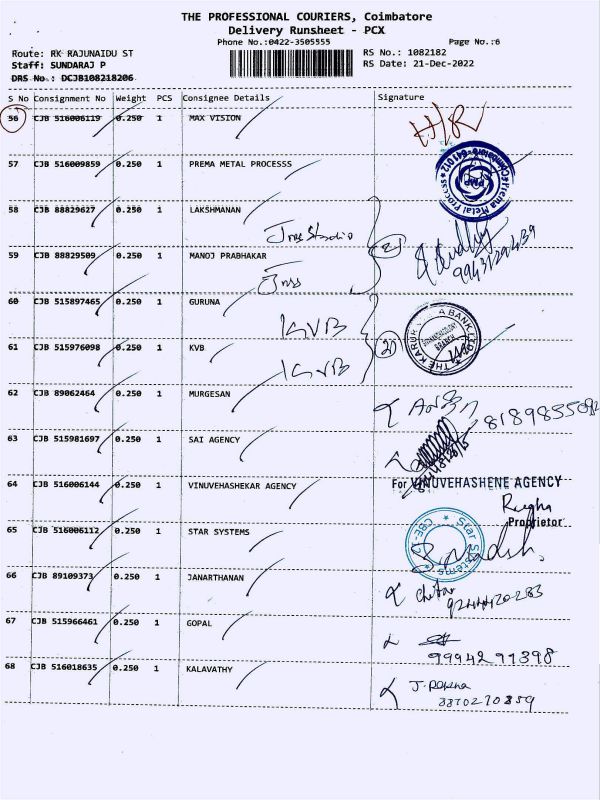 THE PROFESSIONAL COURIERS, Coimbatore
Delivery Runsheet - PCX
Phone No.:0422-3505555 Page No.:6
Route: RK RAJUNAIDU ST RS No.: 1082182
Staff: SUNDARAJ P RS Date: 21-Dec-2022
DRS No.: DCJB108218206
S No Consignment No Weight PCS Consignee Details Signature
56 CJB 516006119 0.250 1 MAX VISION
57 CJB 516009859 0.250 1 PREMA METAL PROCESSS
58 CJB 88829627 0.250 1 LAKSHMANAN
59 CJB 88829509 0.250 1 MANOJ PRABHAKAR
9943129439
60 CJB 515897465 0.250 1 GURUNA
KVB
61 CJB 515976098 0.250 1 KVB
KVB
62 CJB 89062464 0.250 1 MURGESAN
63 CJB 515981697 0.250 1 SAI AGENCY
64 CJB 516006144 0.250 1 VINUVEHASHEKAR AGENCY For VINUVEHASHENE AGENCY
Proprietor
65 CJB 516006112 0.250 1 STAR SYSTEMS Star Systems
66 CJB 89109373 0.250 1 JANARTHANAN
67 CJB 515966461 0.250 1 GOPAL
9994291398
68 CJB 516018635 0.250 1 KALAVATHY
8870270859